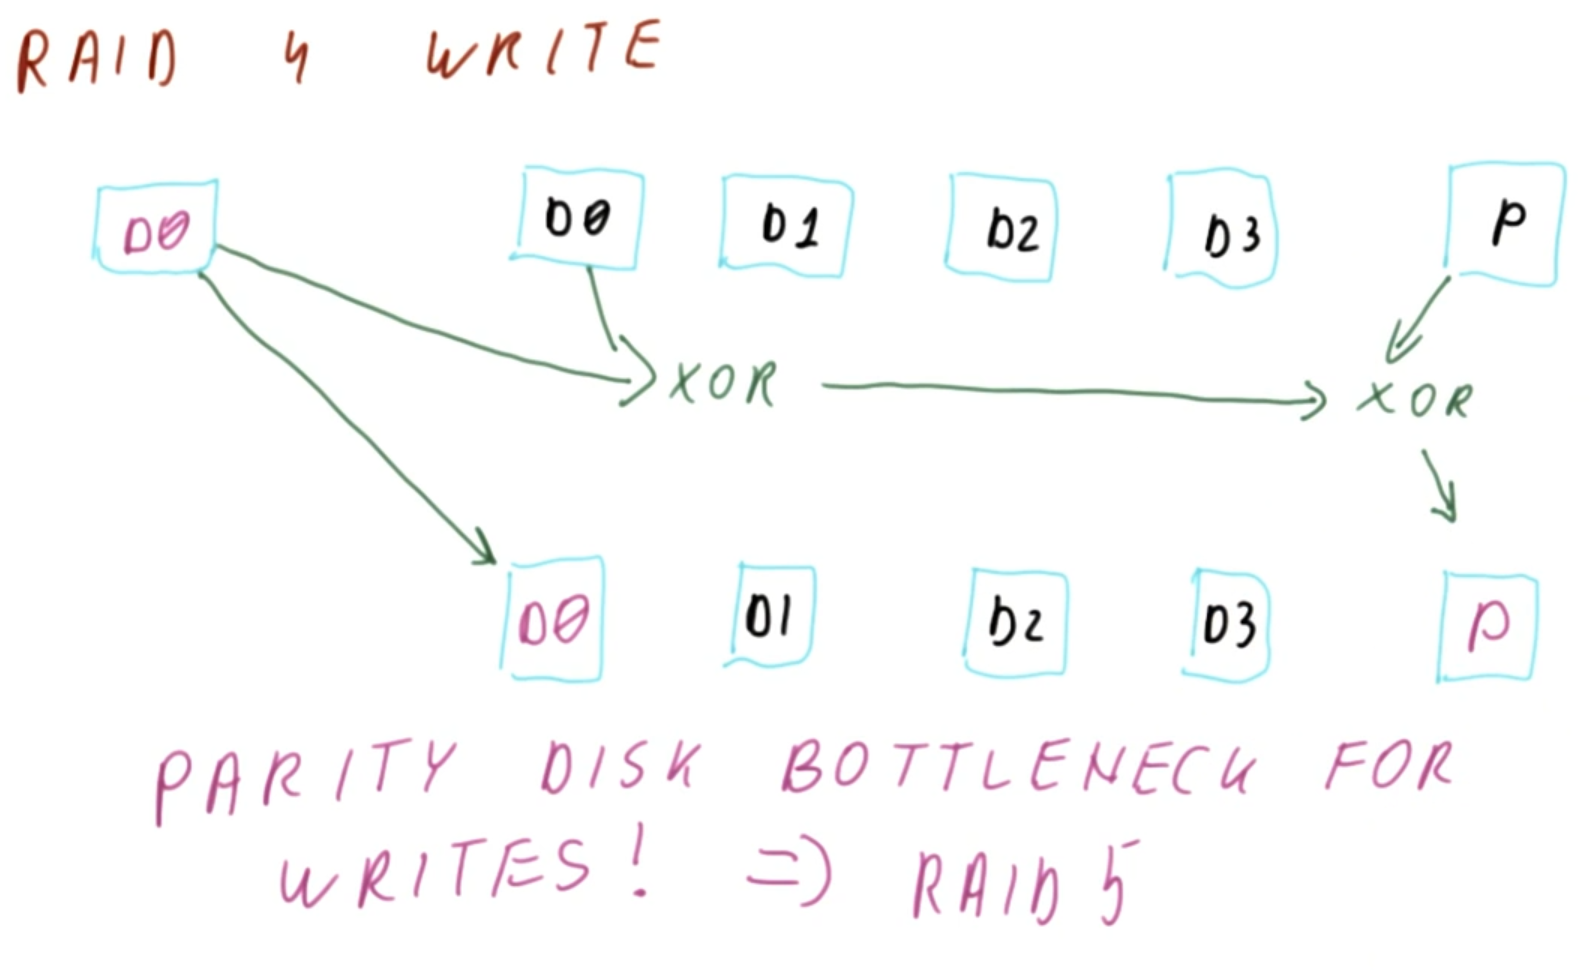 RAID 4 WRITE
DØ DØ D1 D2 D3 P
XOR XOR
DØ D1 D2 D3 P
PARITY DISK BOTTLENECK FOR
WRITES! => RAID 5